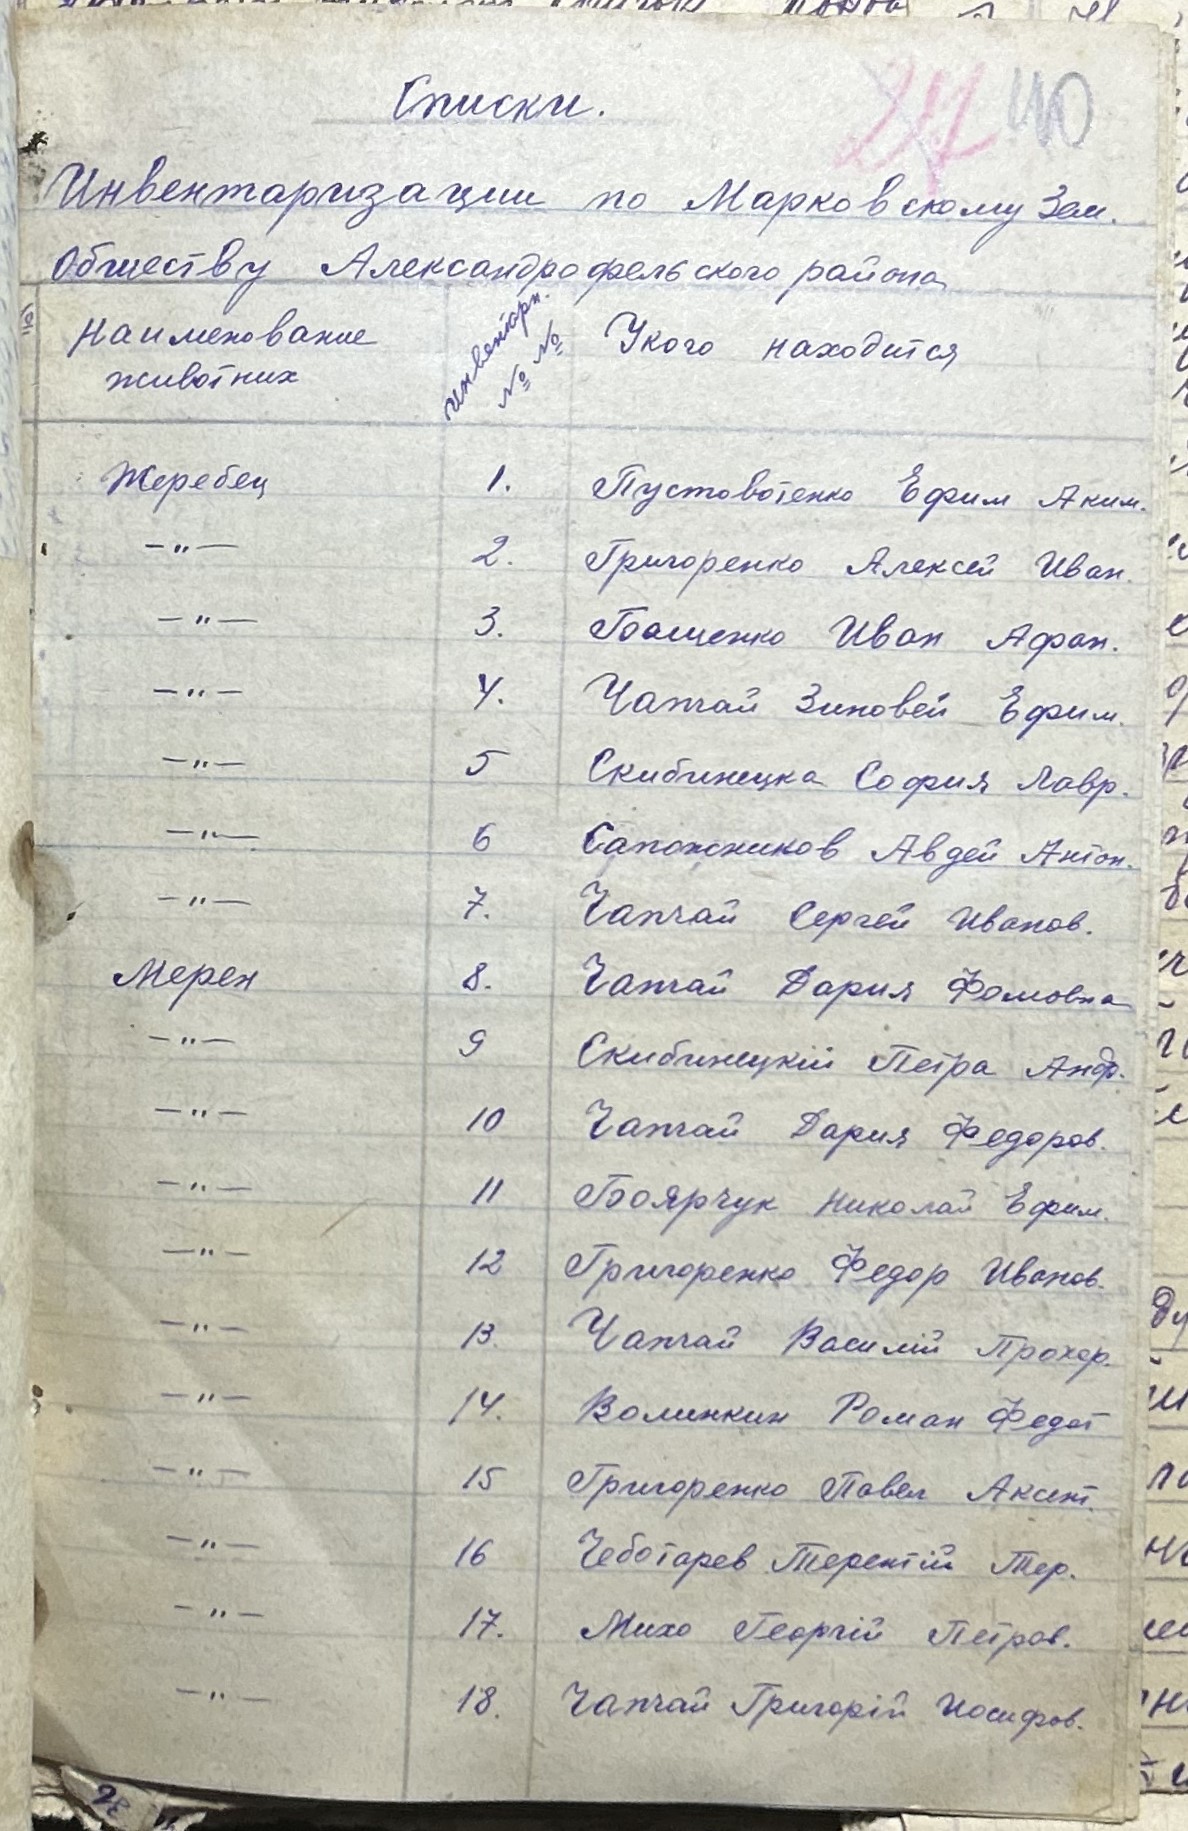 Списки.
27 40
Инвентаризации по Марковскому Зем.
Обществу Александрофельского района
Наименование животних инвентарн. №№ Укого находится
Жеребец 1. Пустовотенко Ефим Аким.
—"— 2. Григоренко Алексей Иван.
—"— 3. Бащенко Иван Афан.
—"— 4. Чапчай Зиновей Ефим.
—"— 5 Скибинецка София Лавр.
—"— 6 Сапожников Авдей Антон.
—"— 7. Чапчай Сергей Иванов.
Мерен 8. Чапчай Дария Фомовна
—"— 9 Скибинецкій Петра Андр.
—"— 10 Чапчай Дария Федоров.
—"— 11 Боярчук Николай Ефим.
—"— 12 Григоренко Федор Иванов.
—"— 13. Чапчай Василій Прохор.
—"— 14. Волинкин Роман Федот
—"— 15 Григоренко Павел Аксент.
—"— 16 Чеботарев Терентій Тер.
—"— 17. Михо Георгій Петров.
—"— 18. Чапчай Григорій Иосифов.